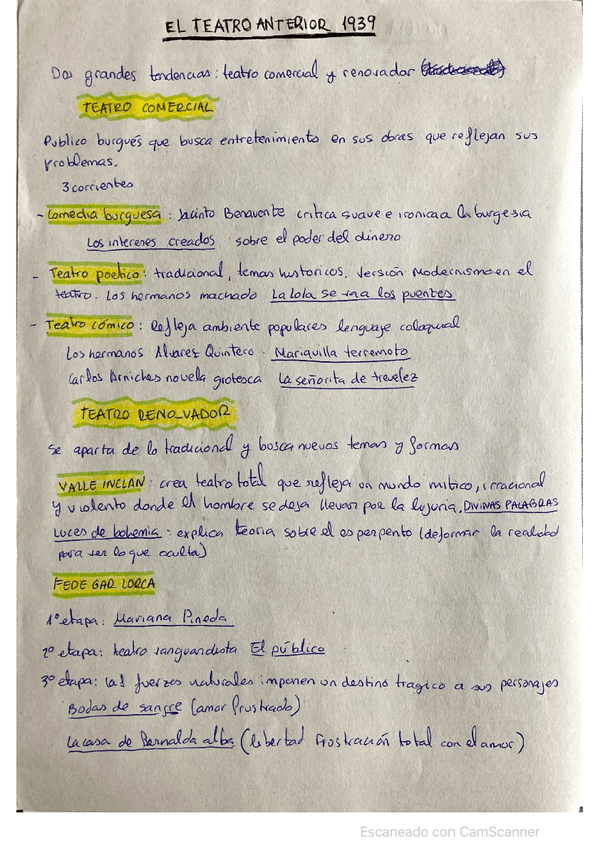 EL TEATRO ANTERIOR 1939
Dos grandes tendencias: teatro comercial y renovador
TEATRO COMERCIAL
Publico burgués que busca entretenimiento en sus obras que reflejan sus
problemas.
3 corrientes
- Comedia burguesa : Jacinto Benavente critica suave e ironica a la burgesia
Los intereses creados : sobre el poder del dinero
- Teatro poetico : tradicional, temas historicos. Versión Modernismo en el
teatro. Los hermanos machado La lola se va a los puentes
- Teatro cómico : Refleja ambiente populares lenguaje coloquial
Los hermanos Alvares Quintero : Mariquilla terremoto
Carlos Arniches novela grotesca La señorita de trevelez
TEATRO RENOVADOR
Se aparta de lo tradicional y busca nuevos temas y formas
VALLE INCLAN : crea teatro total que refleja un mundo mitico, irracional
y violento donde el hombre se deja llevar por la lujuria. DIVINAS PALABRAS
Luces de bohemia : explica teoria sobre el esperpento (deformar la realidad
para ver lo que oculta)
FEDE GAR LORCA
1º etapa: Mariana Pineda
2º etapa: teatro vanguardista El público
3º etapa: las fuerzas naturales imponen un destino tragico a sus personajes
Bodas de sangre (amor frustrado)
La casa de Bernalda alba (libertad frostración total con el amor)
Escaneado con CamScanner